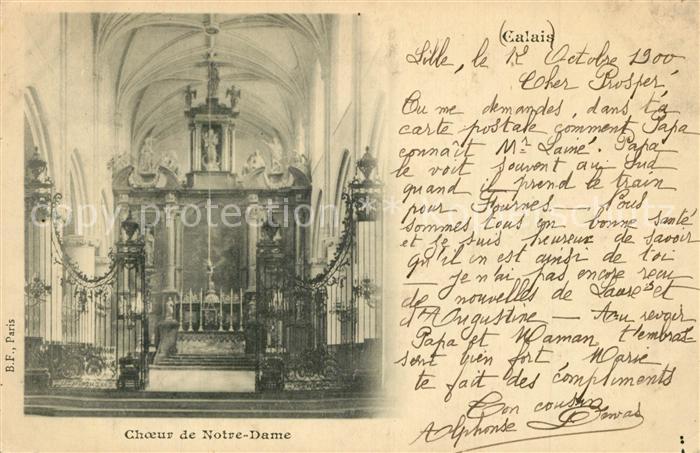 (Calais)
Lille, le 12 Octobre 1900
Cher Prosper,
Tu me demandes, dans ta
carte postale comment Papa
connaît Mr. Lainé. Papa
le voit souvent au Sud
quand il prend le train
pour Fournes — Nous
sommes tous en bonne santé
et je suis heureux de savoir
qu'il en est ainsi de toi
— je n'ai pas encore reçu
de nouvelles de Laure et
d'Augustine — Au revoir
Papa et Maman t'embras-
sent bien fort Marie
te fait des compliments
Ton cousin
Alphonse
B.F., Paris
Chœur de Notre-Dame
copyright